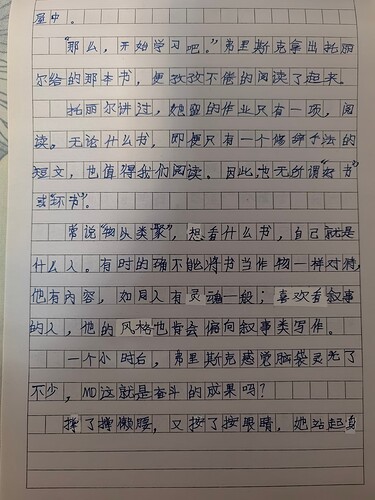 屋中。
“那么，开始学习吧。”弗里斯克拿出托丽
尔给的那本书，便孜孜不倦的阅读了起来。
托丽尔讲过，她留的作业只有一项，阅
读。无论什么书，即便只有一个修辞手法的
短文，也值得我们阅读。因此，也无所谓“好书”
或“坏书”。
常说“物以类聚”，想看什么书，自己就是
什么人。有时的确不能将书当作物一样对待，
他有内容，如同人有灵魂一般；喜欢看叙事
的人，他的风格也肯会偏向叙事类写作。
一个小时后，弗里斯克感觉脑袋灵光了
不少，MD这就是奋斗的成果吗？
撑了撑懒腰，又按了按眼睛，她站起身